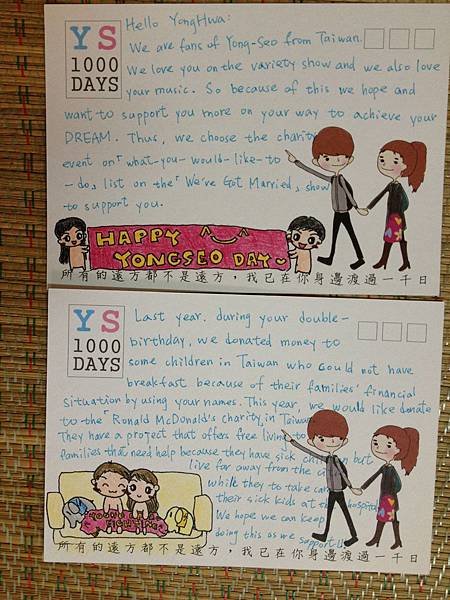 Hello YongHwa:
YS
1000
DAYS
We are fans of Yong-Seo from Taiwan.
We love you on the variety show and we also love
your music. So because of this we hope and
want to support you more on your way to achieve your
DREAM. Thus, we choose the charity
event on「what-you-would-like-to
-do」list on the「We've Got Married」show
to support you.
HAPPY ^_^
YONGSEO DAY
所有的遠方都不是遠方，我已在你身邊渡過一千日
YS
1000
DAYS
Last year, during your double-
birthday, we donated money to
some children in Taiwan who could not have
breakfast because of their families' financial
situation by using your names. This year, we would like donate
to the「Ronald McDonald's charity in Taiwan
They have a project that offers free living to
families that need help because they have sick but
live far away from the
while they to take
their sick kids at the hospital
We hope we can keep
doing this as we support
所有的遠方都不是遠方，我已在你身邊渡過一千日